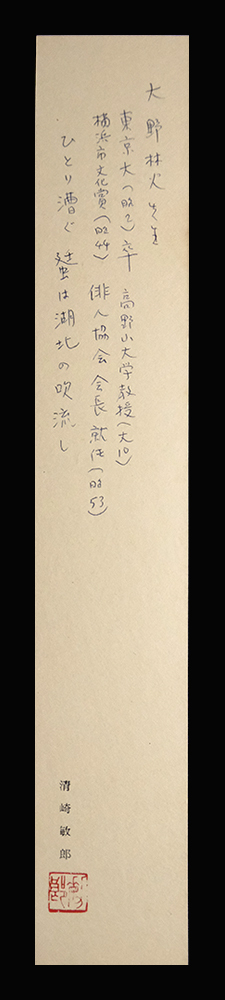 大野林火先生
東京大(昭2)卒 高野山大学教授(大10)
横浜市文化賞(昭44) 俳人協会会長就任(昭53)
ひとり漕ぐ は湖北の吹流し
清崎敏郎